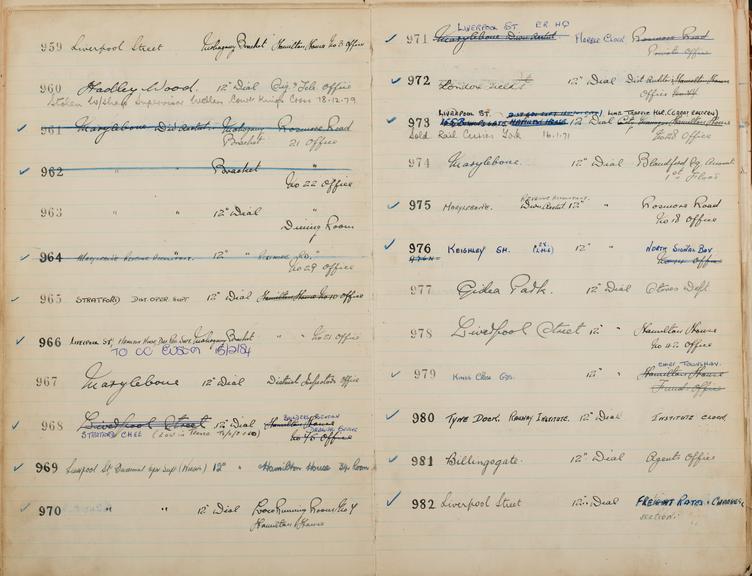 959 Liverpool Street Mahogany Bracket Hamilton House No 3 Office
960 Hadley Wood. 12" Dial Eng. Tele. Office
Stolen 18-12-79
961 Marylebone Dist. Mahogany Rossmore Road
Bracket 21 Office
962 " " Bracket "
No 22 Office
963 " " 12" Dial "
Dining Room
964 Marylebone 12" " Rossmore Rd.
No 29 Office
965 STRATFORD DIST OPER SUPT 12" Dial Hamilton House No 10 Office
966 LIVERPOOL ST. Mahogany Bracket " " No 21 Office
TO CC 15/2/84
967 Marylebone 12" Dial District Inspectors Office
968 Liverpool Street 12" Dial Hamilton House
STRATFORD No 45 Office
969 Liverpool St 12" " Hamilton House Room
970 " " 12" Dial Loco Running Room No 4
Hamilton House
LIVERPOOL ST. E.R. HQ
971 Marylebone Marble Clock Rossmore Road
Private Office
972 London Fields 12" Dial Hamilton House
Office
LIVERPOOL ST.
973 12" Dial Hamilton House
Sold Rail Curios York 16.1.71 No 28 Office
974 Marylebone. 12" Dial Blandford Sq.
1st Floor
975 MARYLEBONE. 12" " Rossmore Road
No 18 Office
976 KEIGHLEY SH. 12" " NORTH SIGNAL BOX
Office
977 Gidea Park. 12" Dial Stores Dept.
978 Liverpool Street 12" " Hamilton House
No 42 Office
979 KINGS CROSS GDS. 12" " Hamilton House
Office
980 TYNE DOCK. RAILWAY INSTITUTE. 12" Dial INSTITUTE CLOCK
981 Billingsgate. 12" Dial Agents Office
982 Liverpool Street 12" Dial FREIGHT RATES & CHARGES
SECTION.